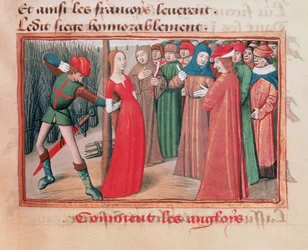 Et ainsi les francois leverent.
Ledit siege honnorablement.
Comment les anglois